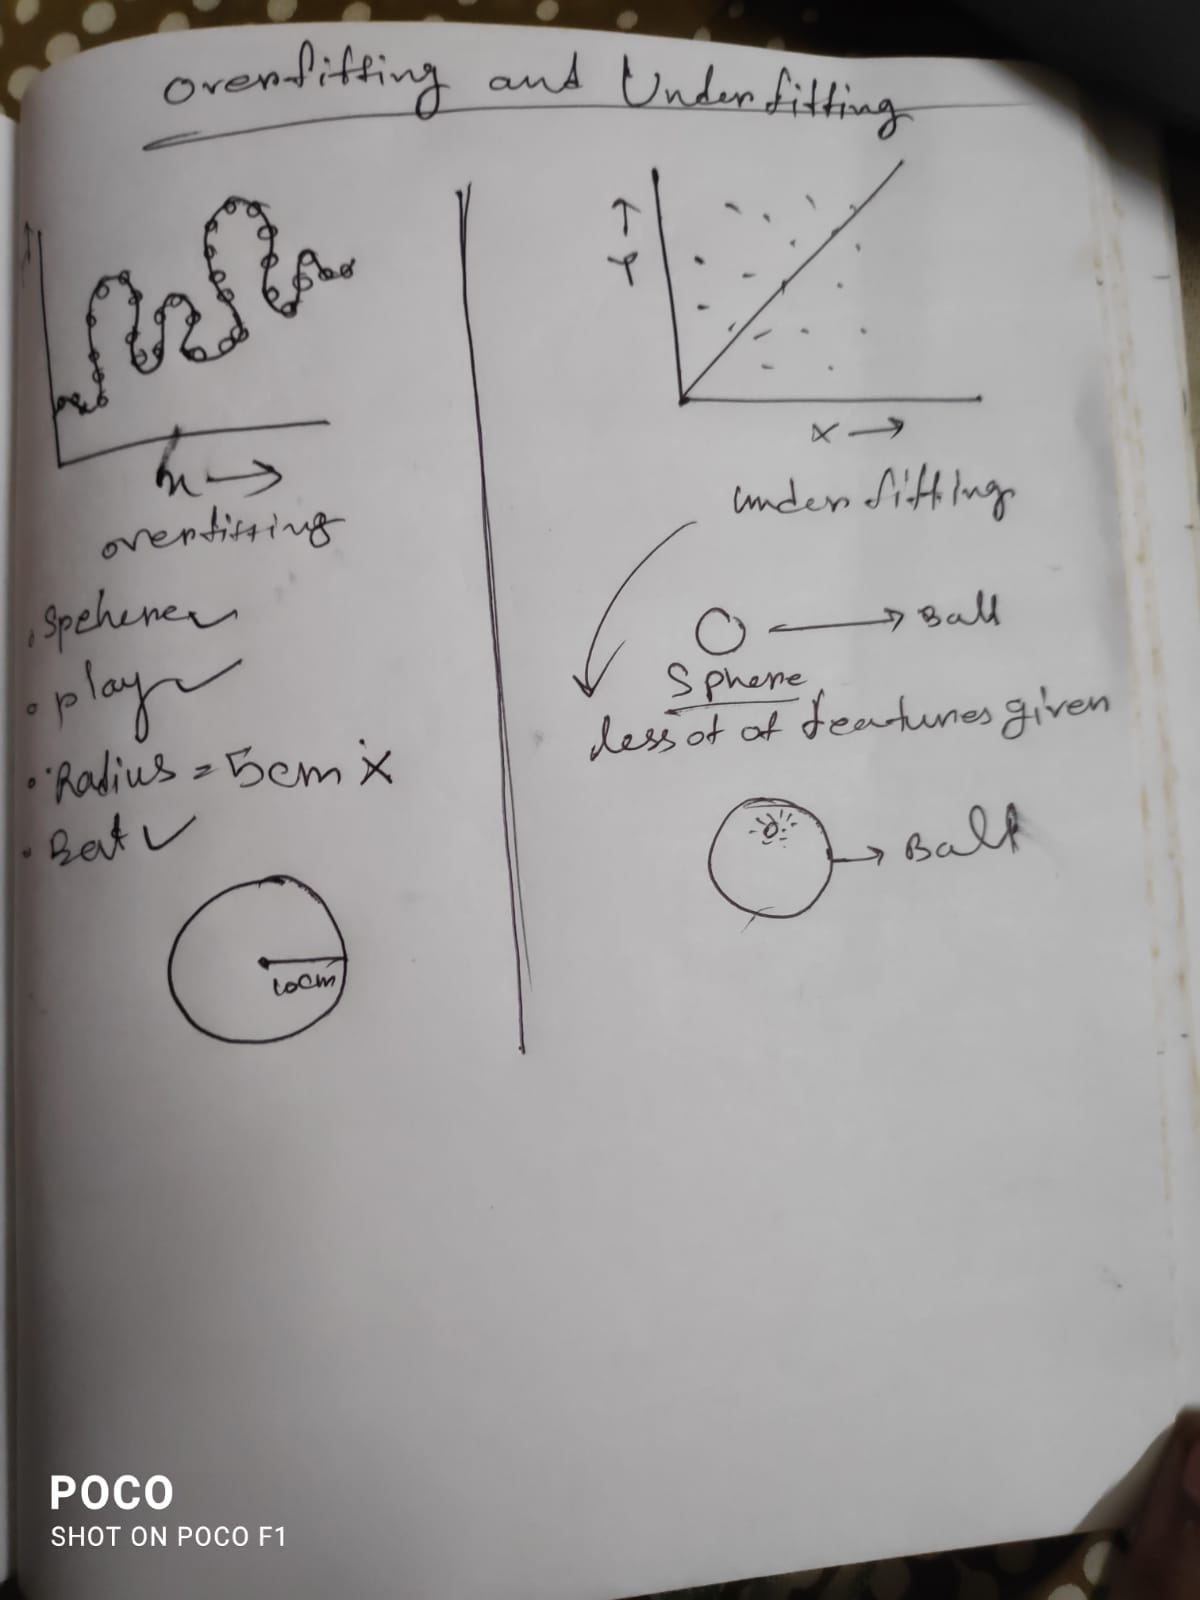 Overfitting and Underfitting
x →
overfitting
. Spehere ✓
• play ✓
• Radius = 5cm ×
• Bat ✓
10cm
↑
Y
x →
underfitting
→ Ball
Sphere
less of of features given
→ Ball
POCO
SHOT ON POCO F1